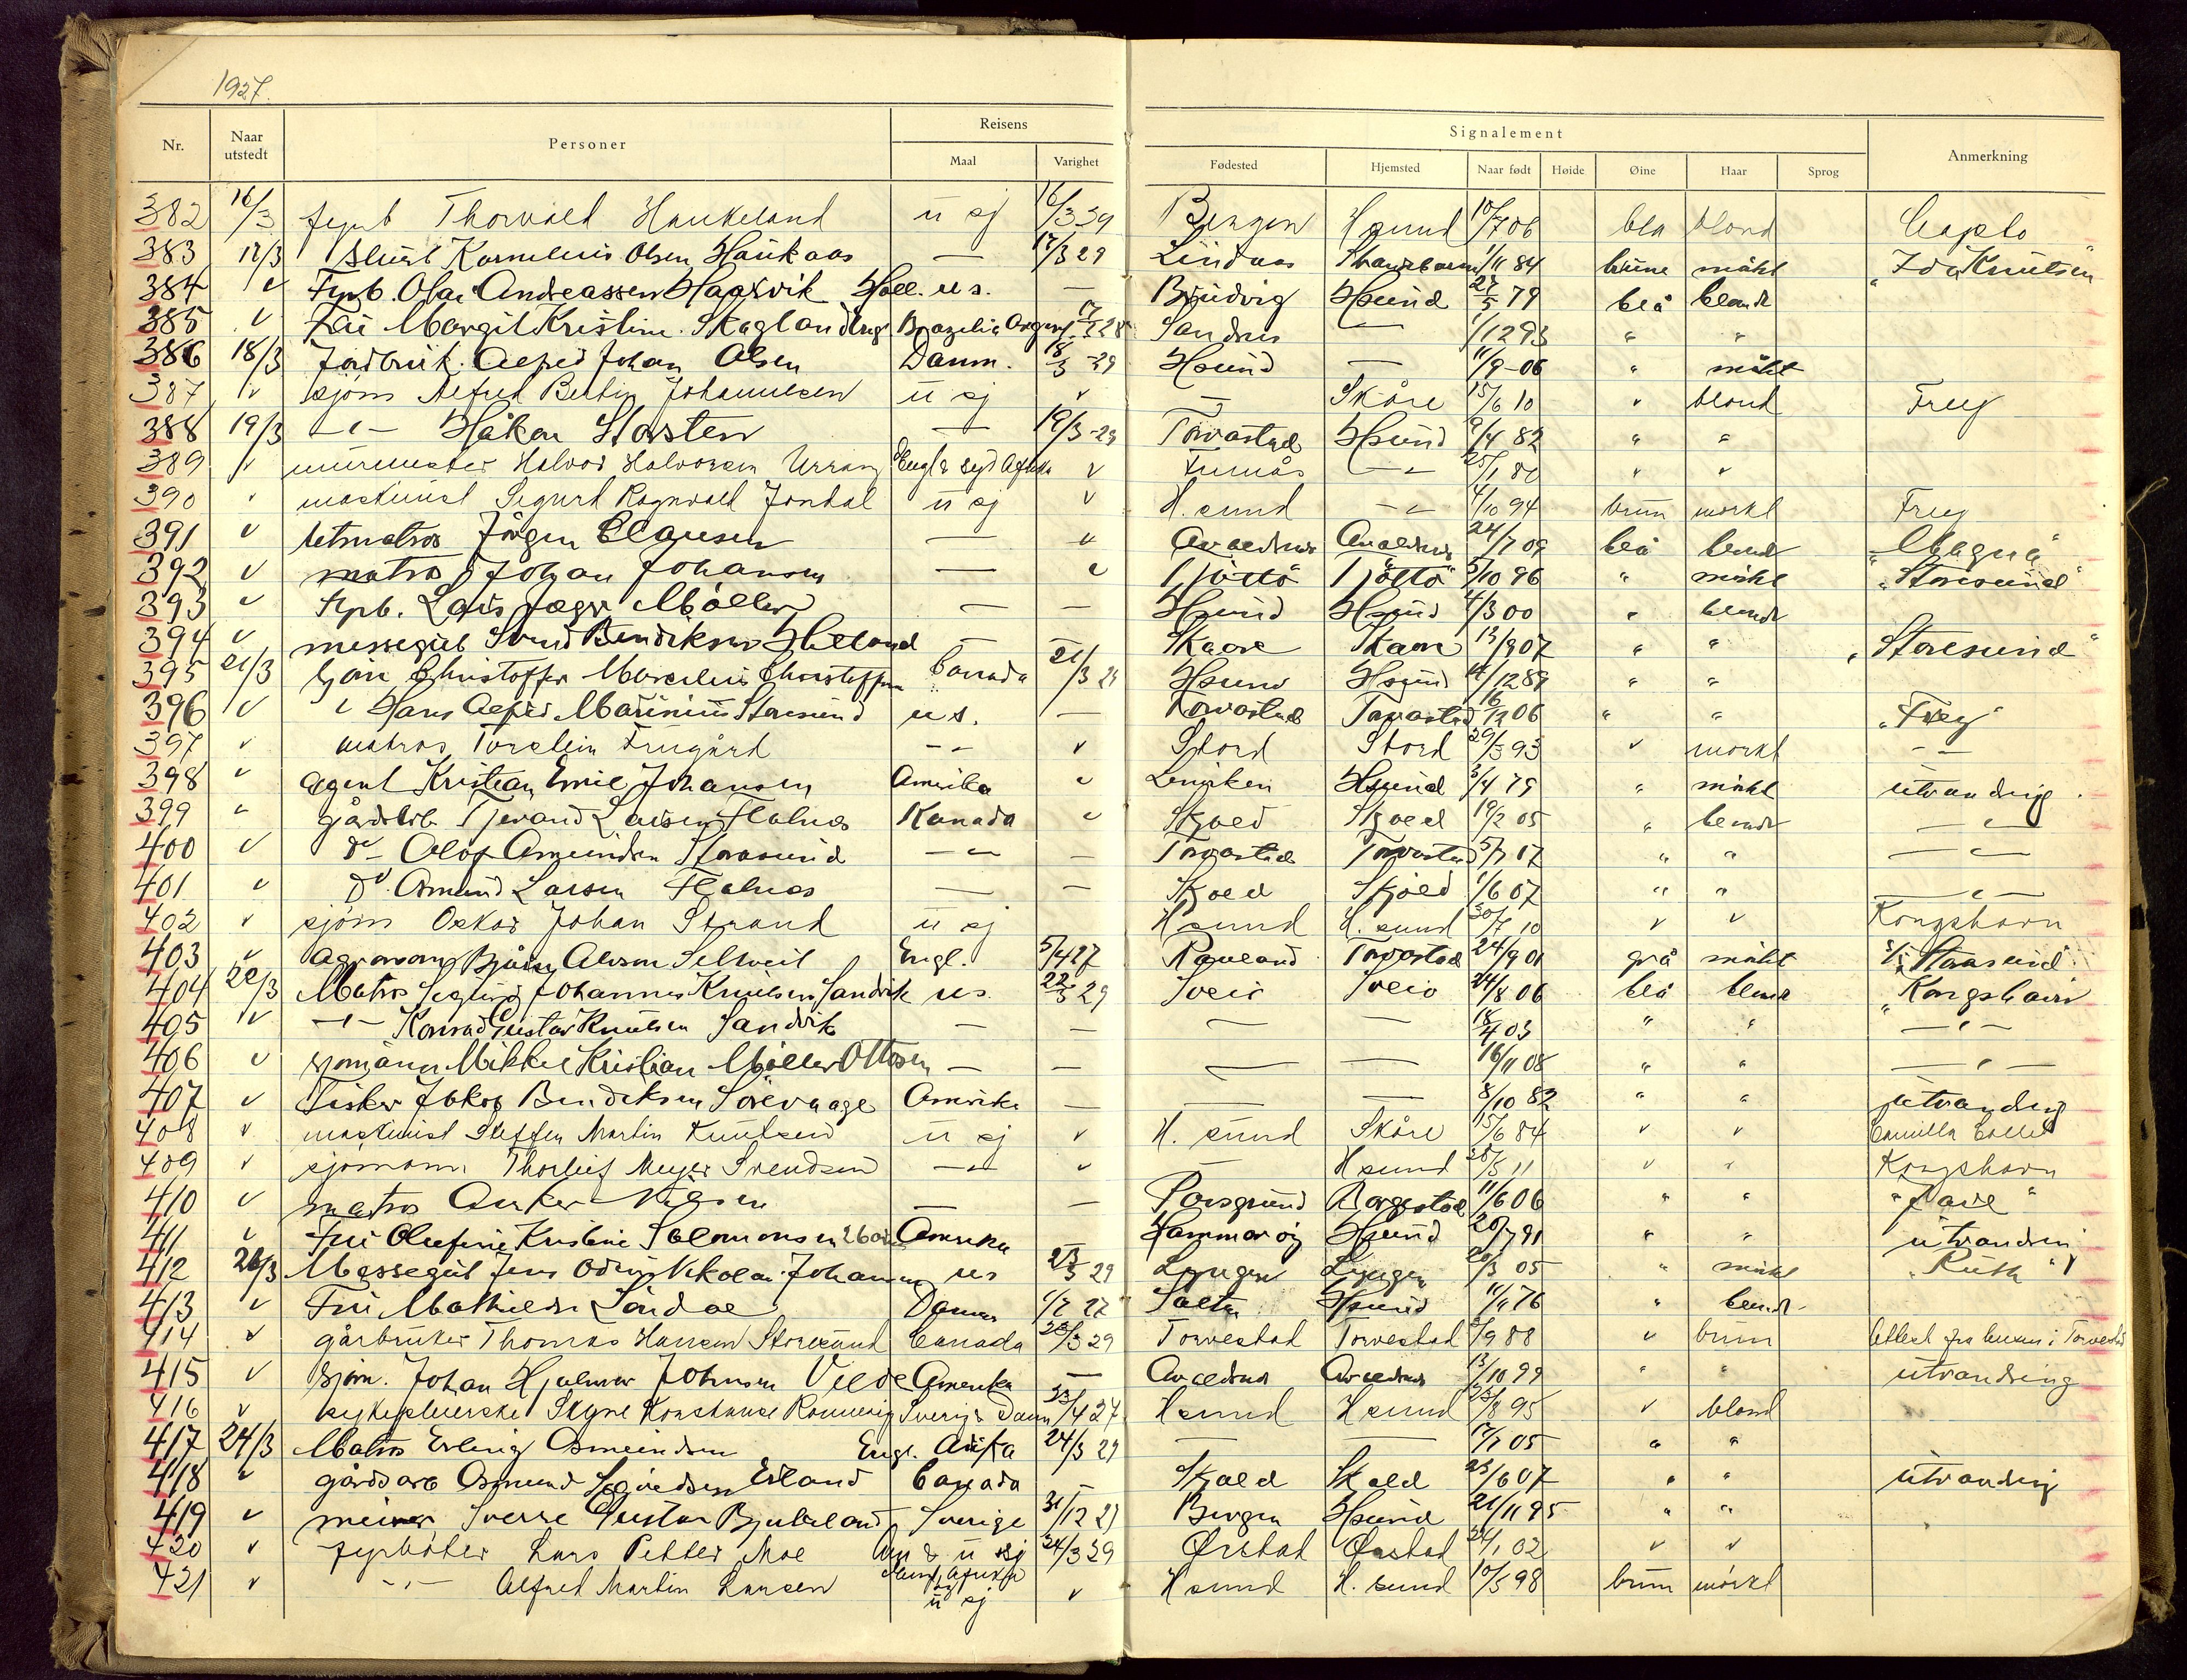 1927.
Nr. Naar utstedt Personer Reisens Maal Varighet Signalement Fødested Hjemsted Naar født Høide Øine Haar Sprog Anmerkning
382 16/3 fyrb Thorvald Haukeland u sj 16/3 39 Bergen H sund 10/7 06 blå blond
383 17/3 Kornelius Olsen Haukaas — 17/3 29 Lindaas 1/11 84 brune mørkt "Ida Knutsen"
384 v Fyrb. Olai Andreassen Haasvik Holl. u s. — Brudvig Hsund 27/5 79 blå blond
385 v Fru Margit Kristine Skagland Brazilia Sandnes — 1/12 93 " "
386 18/3 Jordbruk. Alfred Johan Olsen Danm. 18/3 -29 Hsund — 11/9-06 " mørkt
387 v sjøm Alfred Johannesen u sj v — Skåre 15/6 10 v blond Frey
388 19/3 -"- Håkon Storsten — 19/3-29 Torvastad Hsund 9/4 82 " "
389 v murmester Halvor Halvorsen Engl & Syd Afrika v -"- 25/1 80 v v
390 v maskinist Sigurd Ragnvald Jondal u sj v H. sund -"- 4/10 94 brun mørkt Frey
391 v letmatros Jørgen Clausen — v Avaldsnes Avaldsnes 24/7 09 blå blond "Magna"
392 v matros Johan Johansen — v Tjøttø Tjøttø 5/10 96 " mørkt "Storesund"
393 v Fyrb. Lars Jæger Møller — — Hsund Hsund 4/3 00 " blond
394 v messegut Bendiksen Helland — — Skaare Skaare 13/9 07 " " "Storesund"
395 21/3 Christoffer Marselius Christoffersen Canada 21/3 29 Hsund Hsund 14/12 89 " "
396 v " Hans Alfred Marinius Storesund u s. — Torvastad Torvastad 16/12 06 " " "Frey"
397 v matros Torstein Frugård -"- v Stord Stord 29/3 93 v mørkt -"-
398 v agent Kristian Emil Johansen Amerika v Hsund 3/4 79 " mørkt utvandring.
399 " gårdsarb Tjerand Larsen Halnes Kanada v Skjold Skjold 19/2 05 " blond -"-
400 v do- Olof Amundsen Storasund -"- — Torvastad Torvastad 5/7 07 " " -"-
401 v Do. Osmund Larsen Halnes — — Skjold Skjold 1/6 07 " " -"-
402 v sjøm Oskar Johan Strand u sj H sund H. sund 30/7 10 v v Kongshavn
403 v agronom Engl. 5/4 27 Rauland Torvastad 24/9 01 grå mørkt s/s Storasund
404 22/3 Matros Johannes Knutsen Sandvik u s. 22/3 29 Sveio Sveio 24/8 06 blå blond "Kongshavn
405 v -"- Konrad Gustav Knutsen Sandvik — — — — 18/4 03 " " -"-
406 v sjømann Mikkel Kristian Møller Ottosen — — — — 16/11 08 " " -"-
407 v Fisker Jakob Bendiksen Sørevaage Amerika — — — 8/10 82 " " utvandring
408 v maskinist Steffen Martin Knutsen u sj v H. sund Skåre 15/6 84 v v Camilla Collet
409 v sjømann Thorleif Meyer Svendsen -"- v H sund 28/5 11 v " Kongshavn
410 v matros Anker Nilsen — — Porsgrund Borgestad 11/6 06 " "
411 v Fru Olufine Kristine Salomonsen Amerika — Hammarøy Hsund 20/7 91 " " utvandring
412 23/3 Messegut Jens Odin Nikolai Johansen u s 23/3 29 Lyngen Lyngen 20/3 05 " mørkt "Ruth"
413 v Fru Mathilde Danm 27 Hsund 11/11 76 " blond
414 v gårbruker Thomas Hansen Storesund Canada 23/3 29 Torvestad Torvestad 3/9 88 v brun Attest fra lensm i Torvestad
415 v Sjøm. Johan Hjalmar Johnsen Velde Amerika — Avaldsnes Avaldsnes 13/10 99 " " utvandring
416 v sykepleierske Signe Konstanse Sverig & Danm 23/4 27 H sund H sund 23/8 95 v blond
417 24/3 Matros Erling Osmundsen Engl. Afrika 24/3 29 — — 17/7 05 " "
418 v gårdsarb Osmund Sjovedsen Eiland Canada — Skjold Skjold 23/6 07 " " utvandring
419 v Sverre Gustav Bjelland Sverige 31/12 27 Bergen Hsund 21/11 95 " "
420 v fyrbøter Lars Petter Moe u sj 24/3 29 Ørstad Ørstad 24/1 02 v v
421 v -"- Alfred Martin Larsen Afrika og u sj v H sund H. sund 10/5 98 brun mørkt